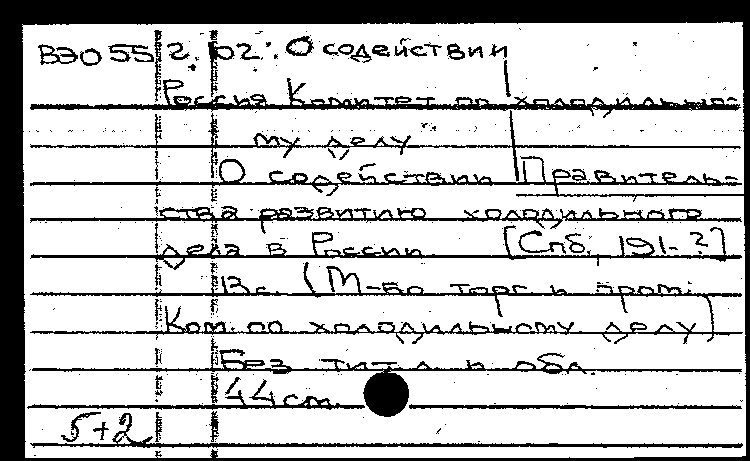 ВЭО 55 г. 02: О содействии
Россия Комитет по холодильно-
му делу
О содействии Правитель-
ства развитию холодильного
дела в России. [Спб., 191-?]
13 с. (М-во торг. и пром.
Ком. по холодильному делу)
Без тит. л. и обл.
44 см.
5+2